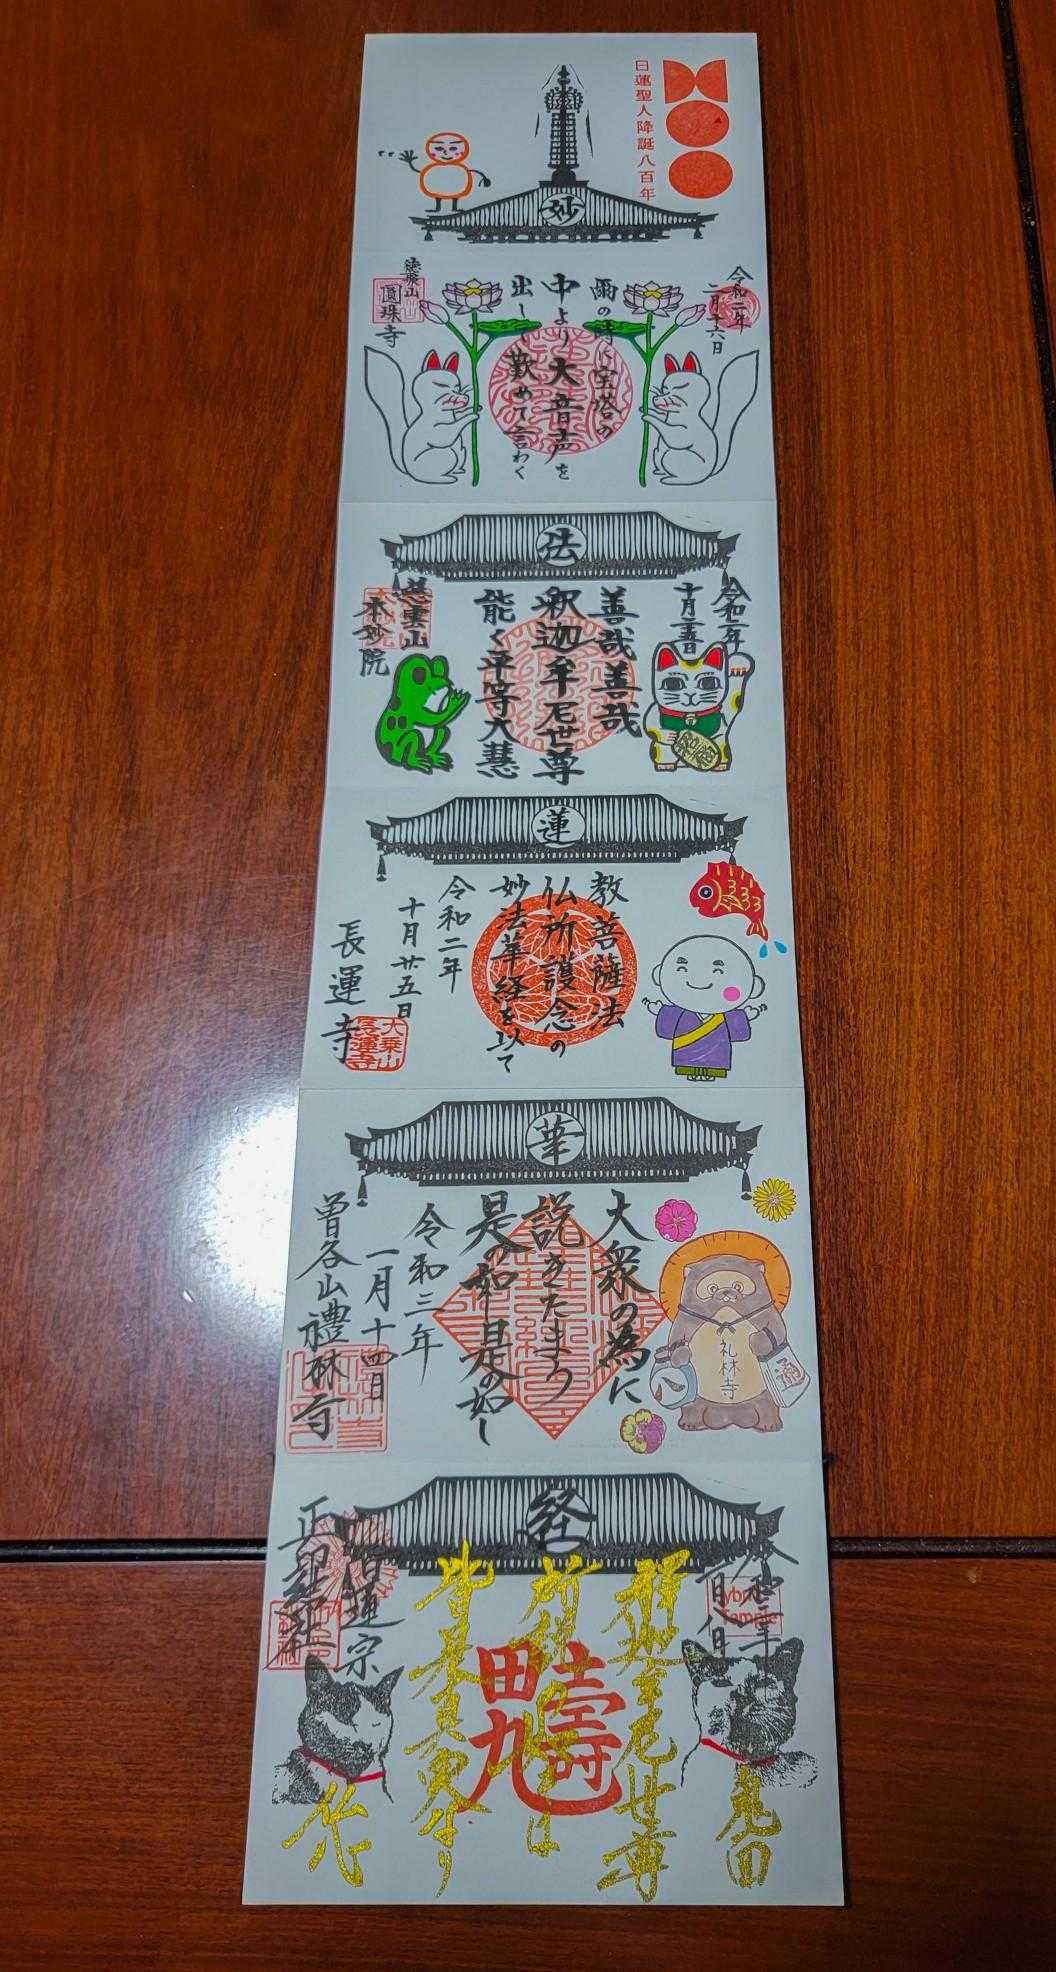 日蓮聖人降誕八百年
妙
令和二年
二月十六日
雨の時に宝塔の
中より大音声を
出して歎めて言わく
圓珠寺
法
令和二年
十月廿五日
善哉善哉
釈迦牟尼世尊
能く平等大慧
慈雲山
本妙院
招福
蓮
教菩薩法
仏所護念の
妙法華経を以て
令和二年
十月廿五日
長運寺
大乗山
長運寺
華
大衆の為に
説きたまう
是の如し是の如し
令和三年
一月十四日
曽谷山禮林寺
礼林寺
通
経
釈迦牟尼世尊
皆是真実なり
日蓮宗